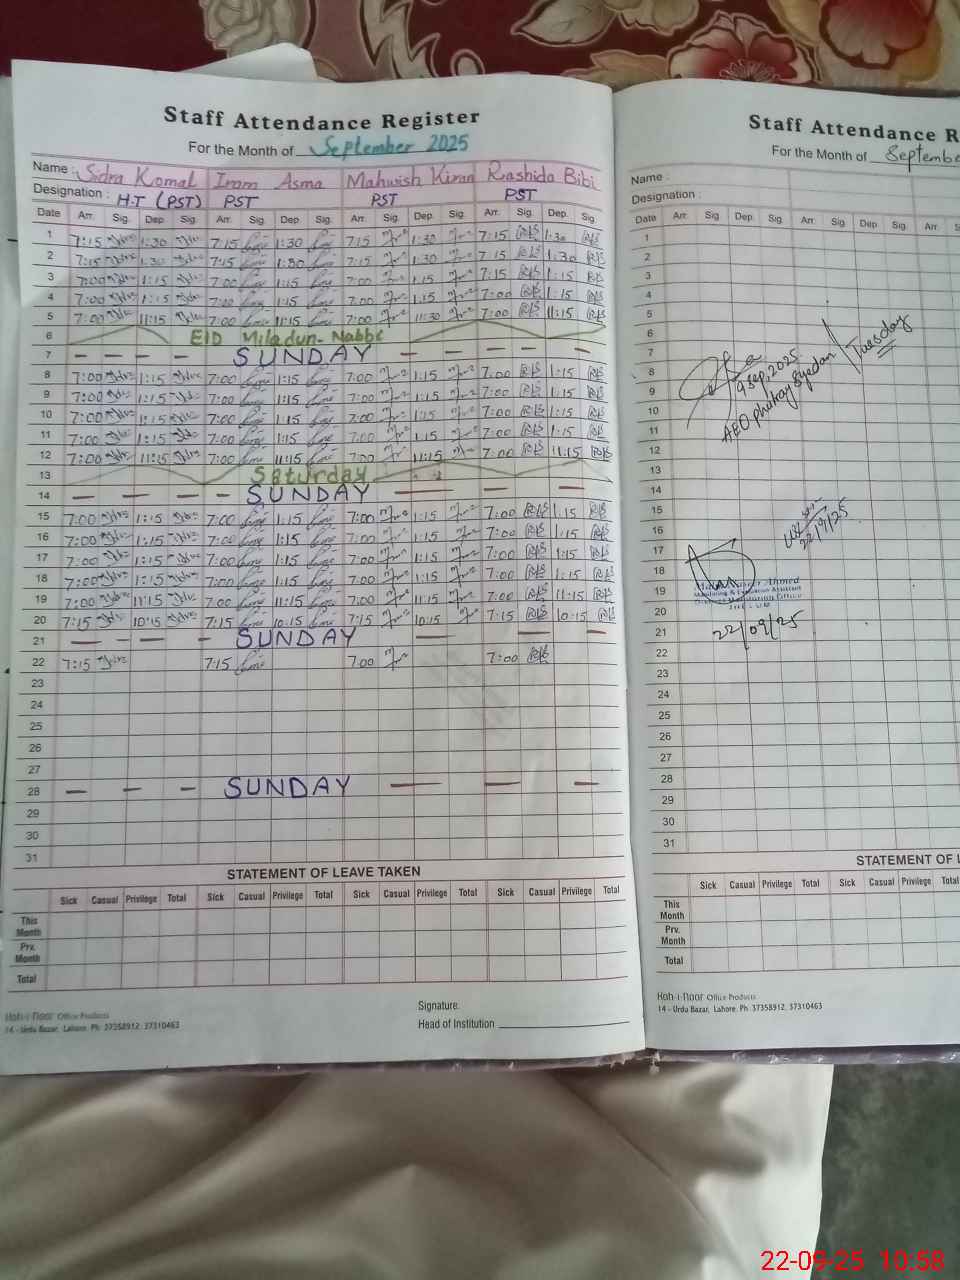 Staff Attendance Register
For the Month of September 2025
Name : Sidra Komal Iram Asma Mahwish Kiran Rashida Bibi
Designation : H.T (PST) PST PST PST
Date Arr. Sig. Dep. Sig. Arr. Sig. Dep. Sig. Arr. Sig. Dep. Sig. Arr. Sig. Dep. Sig.
1 7:15 1:30 7:15 1:30 7:15 1:30 7:15 1:30
2 7:15 1:30 7:15 1:30 7:15 1:30 7:15 1:30
3 7:00 1:15 7:00 1:15 7:00 1:15 7:15 1:15
4 7:00 1:15 7:00 1:15 7:00 1:15 7:00 1:15
5 7:00 11:15 7:00 11:15 7:00 11:30 7:00 11:15
6 EID Miladun-Nabbi
7 SUNDAY
8 7:00 1:15 7:00 1:15 7:00 1:15 7:00 1:15
9 7:00 1:15 7:00 1:15 7:00 1:15 7:00 1:15
10 7:00 1:15 7:00 1:15 7:00 1:15 7:00 1:15
11 7:00 1:15 7:00 1:15 7:00 1:15 7:00 1:15
12 7:00 11:15 7:00 11:15 7:00 11:15 7:00 11:15
13 Saturday
14 SUNDAY
15 7:00 1:15 7:00 1:15 7:00 1:15 7:00 1:15
16 7:00 1:15 7:00 1:15 7:00 1:15 7:00 1:15
17 7:00 1:15 7:00 1:15 7:00 1:15 7:00 1:15
18 7:00 1:15 7:00 1:15 7:00 1:15 7:00 1:15
19 7:00 11:15 7:00 11:15 7:00 11:15 7:00 11:15
20 7:15 10:15 7:15 10:15 7:15 10:15 7:15 10:15
21 SUNDAY
22 7:15 7:15 7:00 7:00
23
24
25
26
27
28 SUNDAY
29
30
31
STATEMENT OF LEAVE TAKEN
Sick Casual Privilege Total Sick Casual Privilege Total Sick Casual Privilege Total Sick Casual Privilege Total
This Month
Prv. Month
Total
Signature:
Head of Institution
Koh-i-Noor Office Products
14 - Urdu Bazar, Lahore. Ph: 37358912, 37310463
Staff Attendance R
For the Month of Septembe
Name :
Designation :
Date Arr. Sig. Dep. Sig. Arr. Sig. Dep. Sig. Arr.
1
2
3
4
5
6
7
8
9
10
11
12
13
14
15
16
17
18
19
20
21
22
23
24
25
26
27
28
29
30
31
9 Sep, 2025
AEO phulray Syedan Tuesday
22/9/25
Ahmed
Monitoring & Evaluation Assistant
District Monitoring Office
JHELUM
22/09/25
STATEMENT OF L
Sick Casual Privilege Total Sick Casual Privilege Total
This Month
Prv. Month
Total
Koh-i-Noor Office Products
14 - Urdu Bazar, Lahore. Ph: 37358912, 37310463
22-09-25 10:58